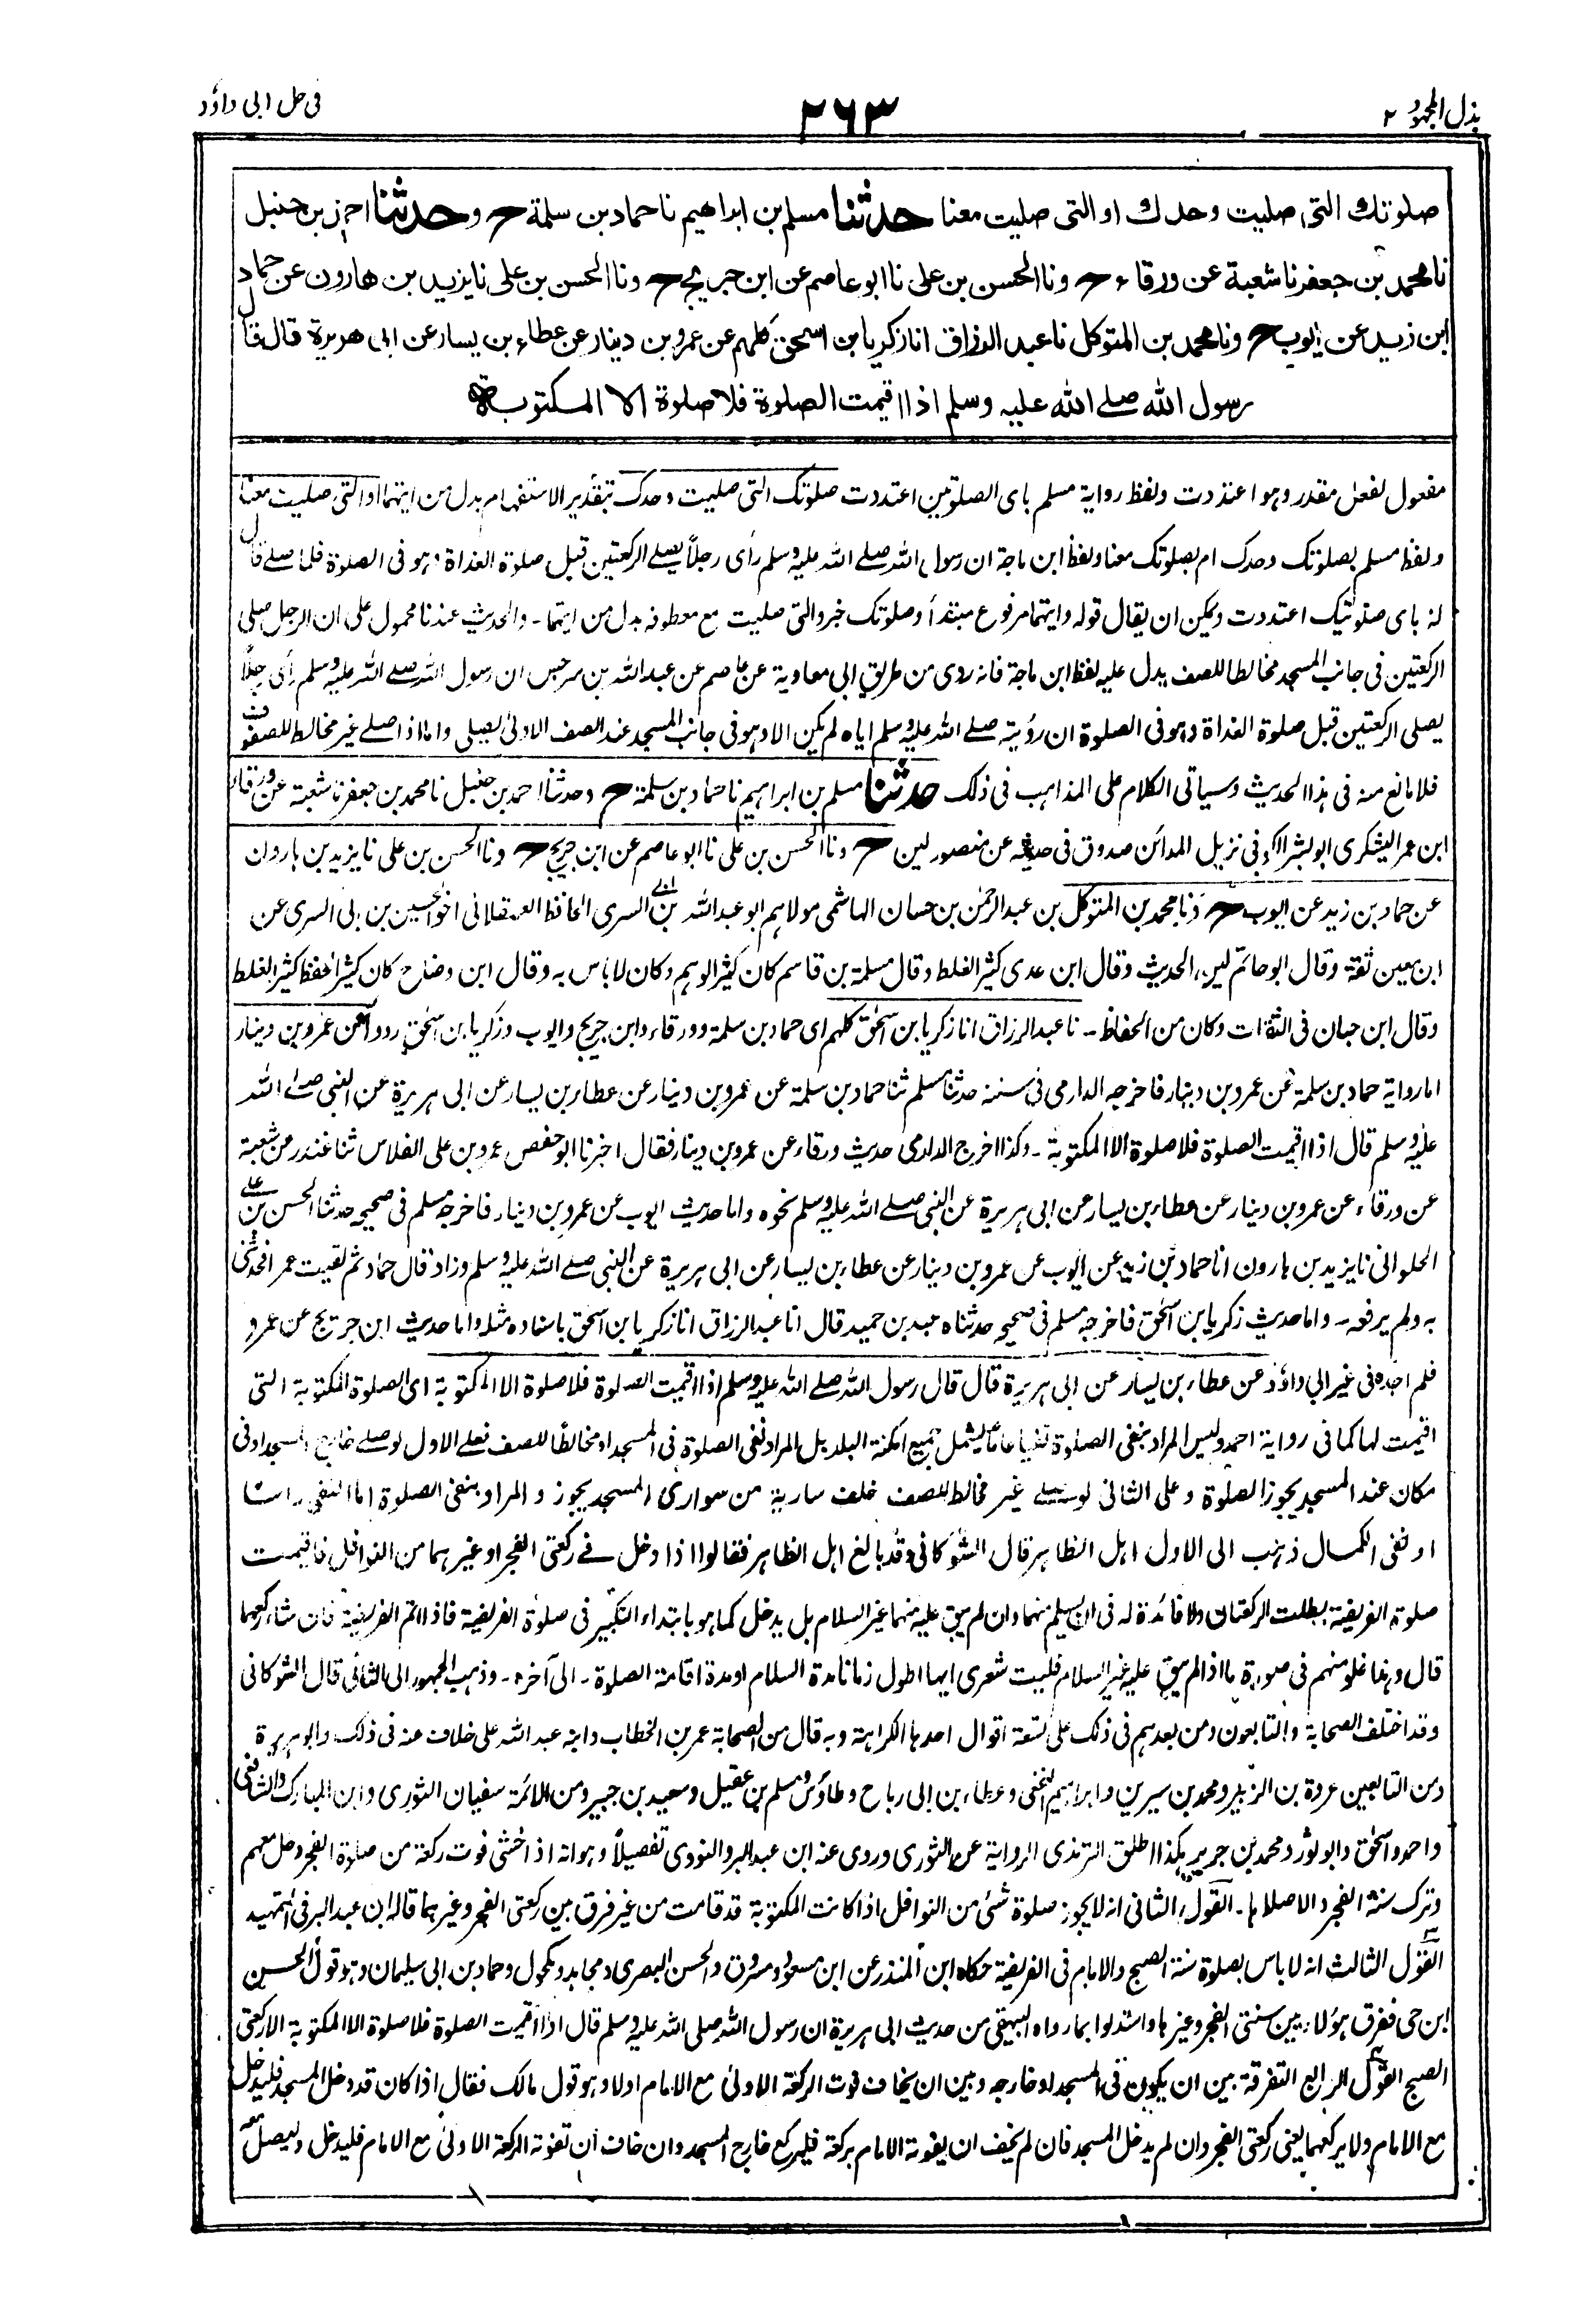 بذل المجهود ٢
٢٦٣
فى حل ابى داؤد
صلوتك التى صليت وحدك او التى صليت معنا حدثنا مسلم بن ابراهيم نا حماد بن سلمة ح وحدثنا احمد بن حنبل
نا محمد بن جعفر نا شعبة عن ورقاء ح ونا الحسن بن على نا ابو عاصم عن ابن جريج ح ونا الحسن بن على نا يزيد بن هارون عن حماد
ابن زيد عن ايوب ح ونا محمد بن المتوكل نا عبد الرزاق انا زكريا بن اسحق كلهم عن عمرو بن دينار عن عطاء بن يسار عن ابى هريرة قال قال
رسول الله صلے الله عليه وسلم اذا اقيمت الصلوة فلا صلوة الا المكتوبة
مفعول لفعل مقدر وهو اعتددت ولفظ رواية مسلم باى الصلوتين اعتددت صلوتك التى صليت وحدك بتقدير الاستفهام بدل من ايتهما او التى صليت معنا
ولفظ مسلم بصلوتك وحدك ام بصلوتك معنا ولفظ ابن ماجة ان رسول الله صلے الله عليه وسلم رأى رجلاً يصلے الركعتين قبل صلوة الغداة وهو فى الصلوة فلما صلے قال
له باى صلوتيك اعتددت ويمكن ان يقال قوله وايتهما مرفوع مبتدأ وصلوتك خبر والتى صليت مع معطوفه بدل من ايتهما ـ والحديث عندنا محمول على ان الرجل صلى
الركعتين فى جانب المسجد مخالطا للصف يدل عليه لفظ ابن ماجة فانه روى من طريق ابى معاوية عن عاصم عن عبد الله بن سرجس ان رسول الله صلے الله عليه وسلم رأى رجلاً
يصلى الركعتين قبل صلوة الغداة وهو فى الصلوة ان رؤيته صلے الله عليه وسلم اياه لم يكن الا وهو فى جانب المسجد عند الصف الاولىٰ يصلى واما اذا صلے غير مخالط للصفوف
فلا مانع منه فى هذا الحديث وسياتى الكلام على المذاهب فى ذلك حدثنا مسلم بن ابراهيم نا حماد بن سلمة ح وحدثنا احمد بن حنبل نا محمد بن جعفر نا شعبة عن ورقاء
ابن عمر اليشكرى ابو بشر الكوفى نزيل المدائن صدوق فى حديثه عن منصور لين ح ونا الحسن بن على نا ابو عاصم عن ابن جريج ح ونا الحسن بن على نا يزيد بن هارون
عن حماد بن زيد عن ايوب ح ونا محمد بن المتوكل بن عبد الرحمٰن بن حسان الهاشمى مولاهم ابو عبد الله بن ابى السرى الحافظ العسقلانى اخو الحسين بن ابى السرى عن
ابن معين ثقة وقال ابو حاتم لين الحديث وقال ابن عدى كثير الغلط وقال مسلمة بن قاسم كان كثير الوهم وكان لا بأس به وقال ابن وضاح كان كثير الحفظ كثير الغلط
وقال ابن حبان فى الثقات وكان من الحفاظ ـ نا عبد الرزاق انا زكريا بن اسحٰق كلهم اى حماد بن سلمة وورقاء وابن جريج وايوب وزكريا بن اسحٰق رووا عن عمرو بن دينار
اما رواية حماد بن سلمة عن عمرو بن دينار فاخرجه الدارمى فى سننه حدثنا مسلم ثنا حماد بن سلمة عن عمرو بن دينار عن عطاء بن يسار عن ابى هريرة عن النبى صلے الله
عليه وسلم قال اذا اقيمت الصلوة فلا صلوة الا المكتوبة ـ وكذا اخرج الدارمى حديث ورقاء عن عمرو بن دينار فقال اخبرنا ابو حفص عمرو بن على الفلاس ثنا غندر عن شعبة
عن ورقاء عن عمرو بن دينار عن عطاء بن يسار عن ابى هريرة عن النبى صلے الله عليه وسلم نحوه واما حديث ايوب عن عمرو بن دينار فاخرجه مسلم فى صحيحه حدثنا الحسن بن على
الحلوانى نا يزيد بن هارون انا حماد بن زيد عن ايوب عن عمرو بن دينار عن عطاء بن يسار عن ابى هريرة عن النبى صلے الله عليه وسلم وزاد قال حماد ثم لقيت عمرا فحدثنى
به ولم يرفعه ـ واما حديث زكريا بن اسحٰق فاخرجه مسلم فى صحيحه حدثناه عبد بن حميد قال انا عبد الرزاق انا زكريا بن اسحٰق باسناده مثله واما حديث ابن جريج عن عمرو
فلم اجده فى غير ابى داؤد عن عطاء بن يسار عن ابى هريرة قال قال رسول الله صلے الله عليه وسلم اذا اقيمت الصلوة فلا صلوة الا المكتوبة اى الصلوة المكتوبة التى
اقيمت لها كما فى رواية احمد وليس المراد بنفى الصلوة نفيا عاما يشمل جميع امكنة البلد بل المراد نفى الصلوة فى المسجد او مخالطا للصف فعلى الاول لو صلے خارج المسجد او فى
مكان عند المسجد يجوز الصلوة وعلى الثانى لو صلے غير مخالط للصف خلف سارية من سوارى المسجد يجوز والمراد بنفى الصلوة اما النفى راسا
او نفى الكمال ذهب الى الاول اهل الظاهر قال الشوكانى وقد بالغ اهل الظاهر فقالوا اذا دخل فى ركعتى الفجر او غيرهما من النوافل فاقيمت
صلوة الفريضة بطلت الركعتان ولا فائدة له فى ان يسلم منهما وان لم يبق عليه منهما غير السلام بل يدخل كما هو بابتداء التكبير فى صلوة الفريضة فاذا اتم الفريضة فان شاء ركعهما
قال وهذا غلو منهم فى صورة ما اذا لم يبق عليه غير السلام فليت شعرى ايها اطول زمانا مدة السلام او مدة اقامة الصلوة ـ الى آخره ـ وذهب الجمهور الى الثانى قال الشوكانى
وقد اختلف الصحابة والتابعون ومن بعدهم فى ذلك على تسعة اقوال احدها الكراهة وبه قال من الصحابة عمر بن الخطاب وابنه عبد الله على خلاف عنه فى ذلك وابو هريرة
ومن التابعين عروة بن الزبير ومحمد بن سيرين وابراهيم النخعى وعطاء بن ابى رباح وطاؤس ومسلم بن عقيل وسعيد بن جبير ومن الائمة سفيان الثورى وابن المبارك والشافعى
واحمد واسحٰق وابو ثور ومحمد بن جرير هكذا اطلق الترمذى الرواية عن الثورى وروى عنه ابن عبد البر والنووى تفصيلاً وهو انه اذا خشى فوت ركعة من صلوة الفجر دخل معهم
وترك سنة الفجر والا صلاها ـ القول الثانى انه لا يجوز صلوة شئ من النوافل اذا كانت المكتوبة قد قامت من غير فرق بين ركعتى الفجر وغيرهما قاله ابن عبد البر فى التمهيد
القول الثالث انه لا باس بصلوة سنة الصبح والامام فى الفريضة حكاه ابن المنذر عن ابن مسعود ومسروق والحسن البصرى ومجاهد ومكحول وحماد بن ابى سليمان وهو قول الحسين
ابن حى ففرق هؤلاء بين سنتى الفجر وغيرها واستدلوا بما رواه البيهقى من حديث ابى هريرة ان رسول الله صلى الله عليه وسلم قال اذا اقيمت الصلوة فلا صلوة الا المكتوبة الا ركعتى
الصبح القول الرابع التفرقة بين ان يكون فى المسجد او خارجه وبين ان يخاف فوت الركعة الاولىٰ مع الامام اولا وهو قول مالك فقال اذا كان قد دخل المسجد فليدخل
مع الامام ولا يركعهما يعنى ركعتى الفجر وان لم يدخل المسجد فان لم يخف ان يفوته الامام بركعة فليركع خارج المسجد وان خاف ان تفوته الركعة الاولىٰ مع الامام فليدخل وليصل معه